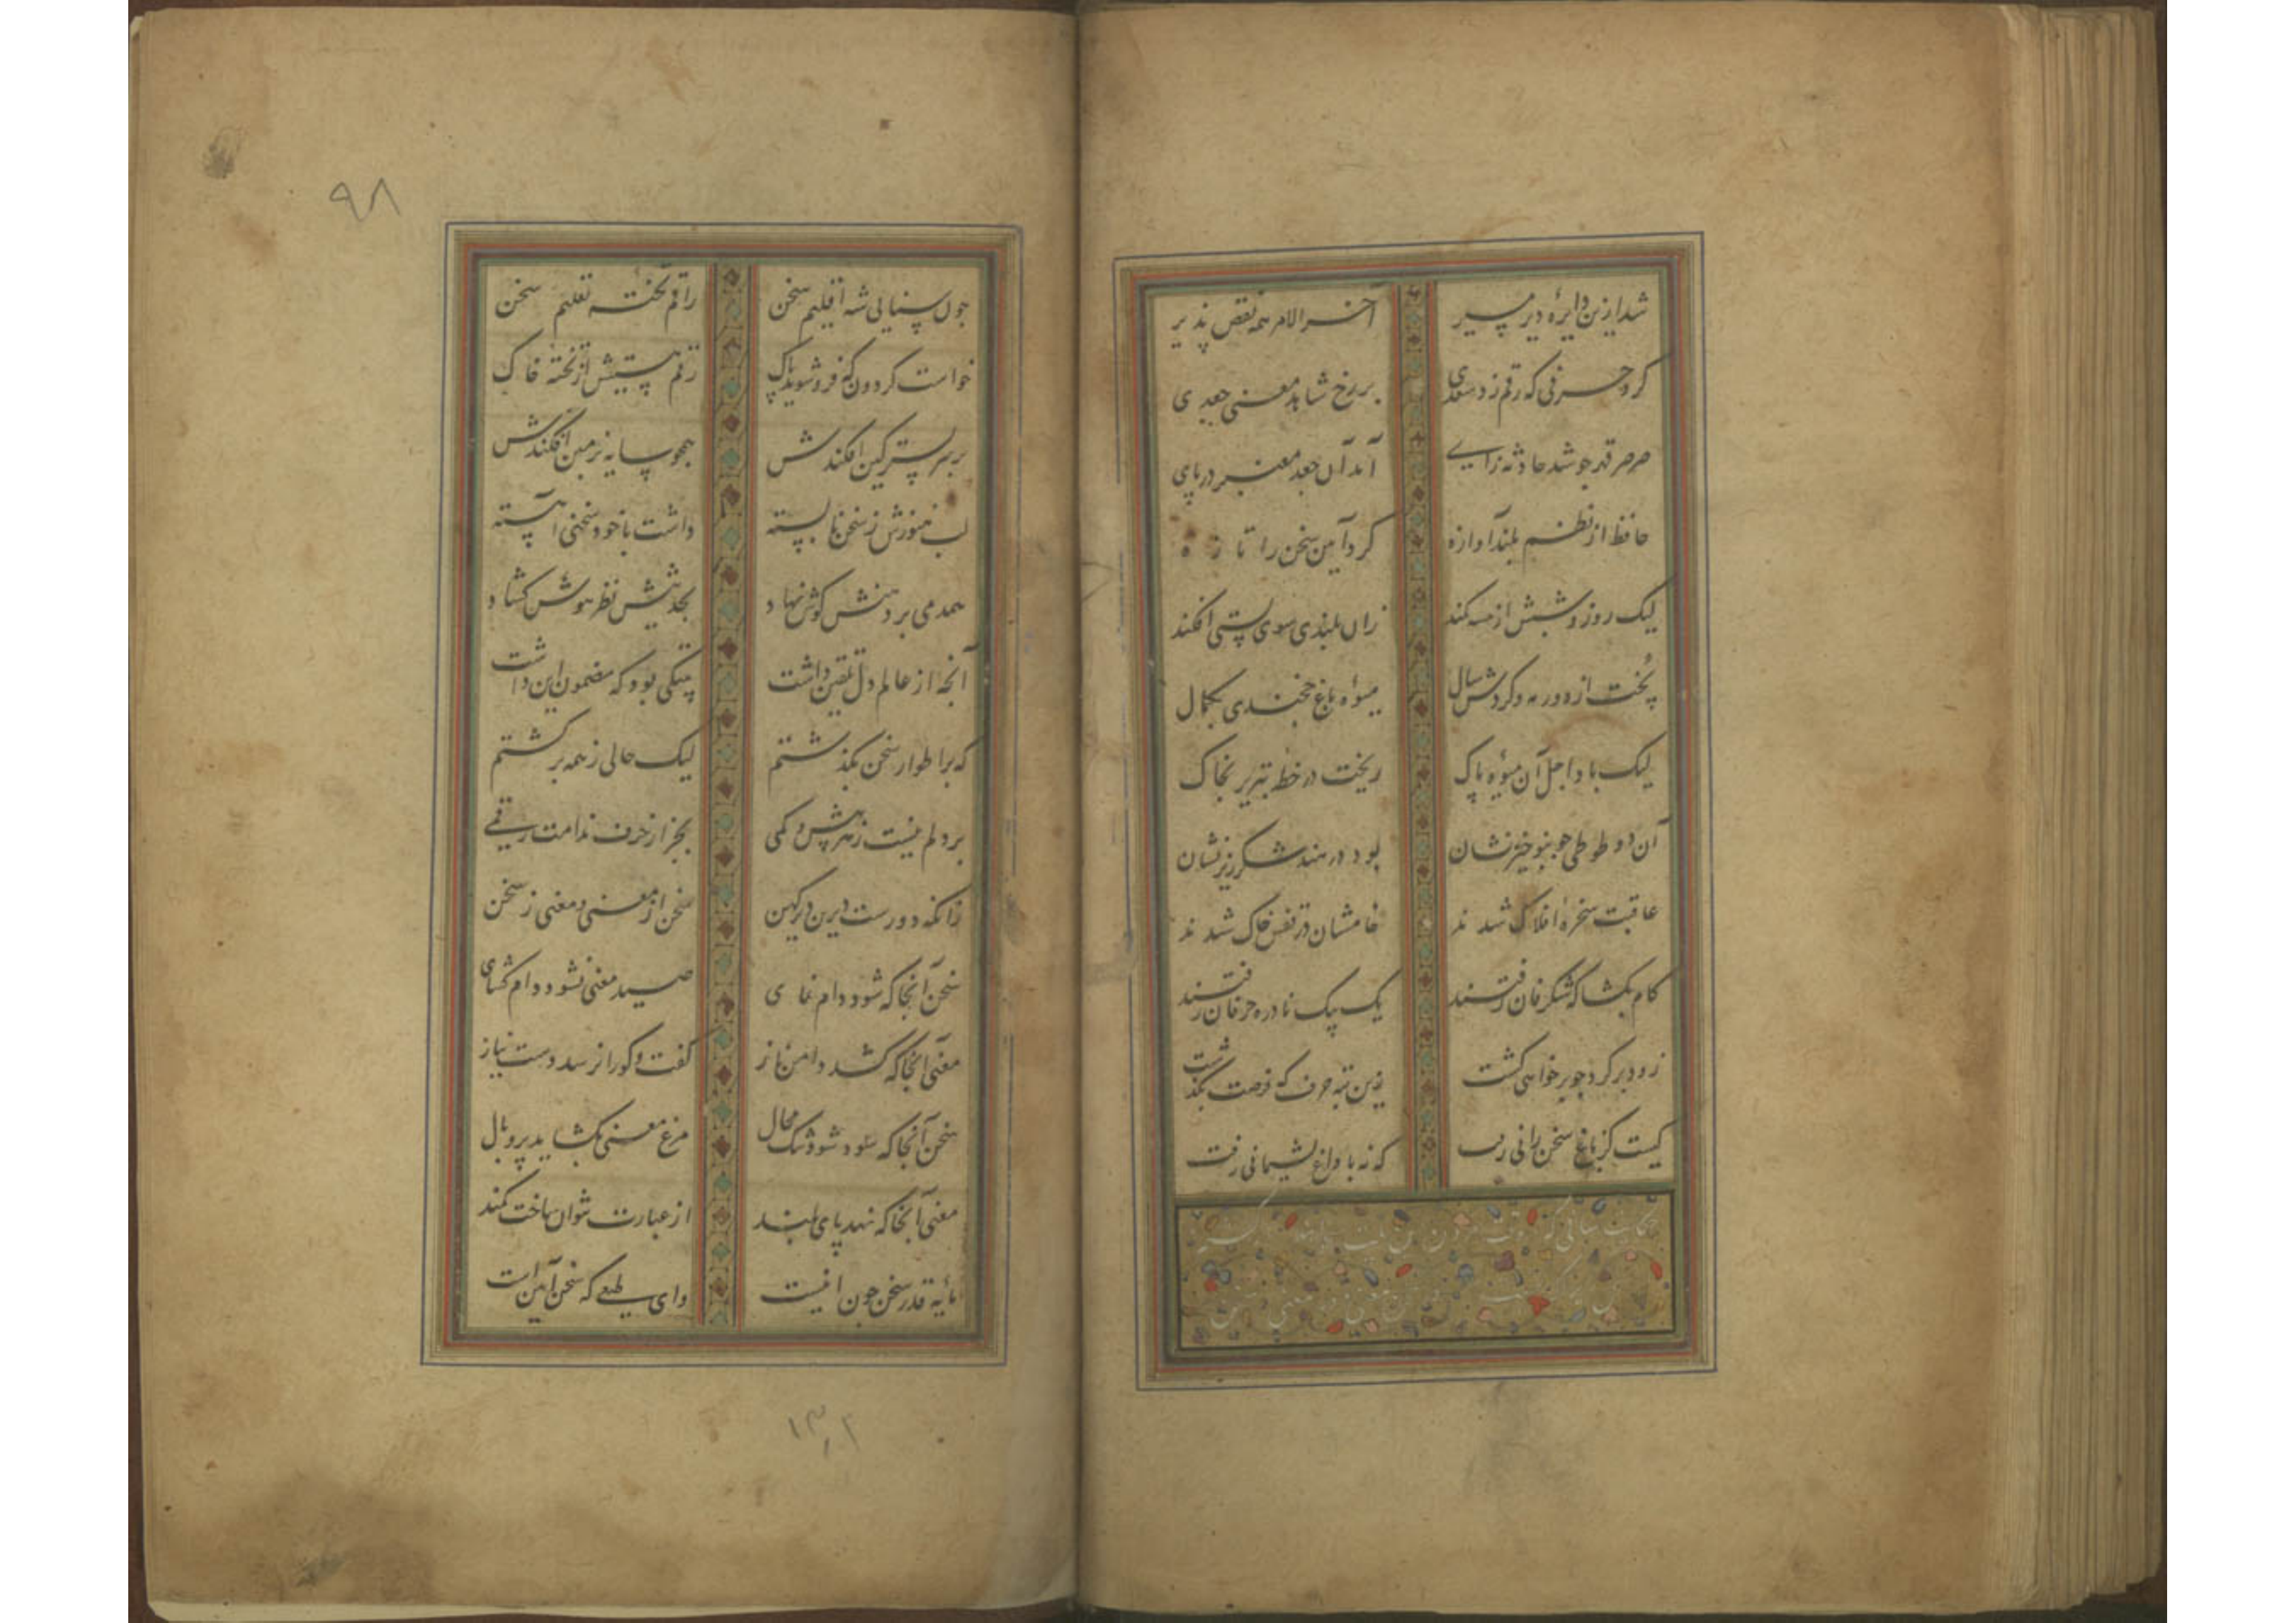 شد ازین دایرهٔ دیر مسیر آخر الامر همه نقص پذیر
کرد حرفی که رقم زد سعدی بر رخ شاهد معنی جعدی
صرصر قهر جو شد حادثه زایی آمد آن جعد معنبر در پای
حافظ از نظم بلند آوازه کرد آیین سخن را تازه
لیک روز و شبش از مسه کمند زان بلندی سوی پستی افکند
پخت از دور مه و کردش سال میوهٔ باغ خجندی بکمال
لیک باد اجل آن میوهٔ پاک ریخت در خطه تبریز بخاک
آن دو طوطی جو بنوخیزنشان بود در هند شکرریزنشان
عاقبت سخرهٔ افلاک شدند خامشان در قفس خاک شدند
کام بکشا که شکرفان رفتند یک بیک نادره حرفان رفتند
زود برکرد جو برخواهی کشت زین تبه حرف که فرصت بکذشت
کیست کز باغ سخن رانی رفت که نه با داغ پشیمانی رفت
حکایت سنائی که
جون سنایی شه اقلیم سخن راقم تختهٔ تعلیم سخن
خواست کردون که فروشوید پاک رقم هستیش از تختهٔ خاک
بر سر بستر کین افکندش همجو سایه بزمین افکندش
لب هنوزش ز سخن نابسته داشت با خود سخنی آهسته
همدمی بر دهنش کوش نهاد بحدیثش نظر هوش کشاد
آنجه از عالم دل تلقین داشت بیتکی بود که مضمون این داشت
که بر اطوار سخن بکذشتم لیک حالی ز همه برکشتم
بر دلم نیست ز هر بیش و کمی بجز از حرف ندامت رقمی
زانکه دورست درین دیر کهن سخن از معنی و معنی ز سخن
سخن آنجا که شود دام نمای صید معنی نشود دام کشای
معنی آنجا که کشد دامن ناز کفت و کو را نرسد دست نیاز
سخن آنجا که شود تنک مجال مرغ معنی نکشاید پر و بال
معنی آنجا که نهد پای بلند از عبارت نتوان ساخت کمند
مایهٔ قدر سخن جون اینست وای طبعی که سخن آیین است
۹۸